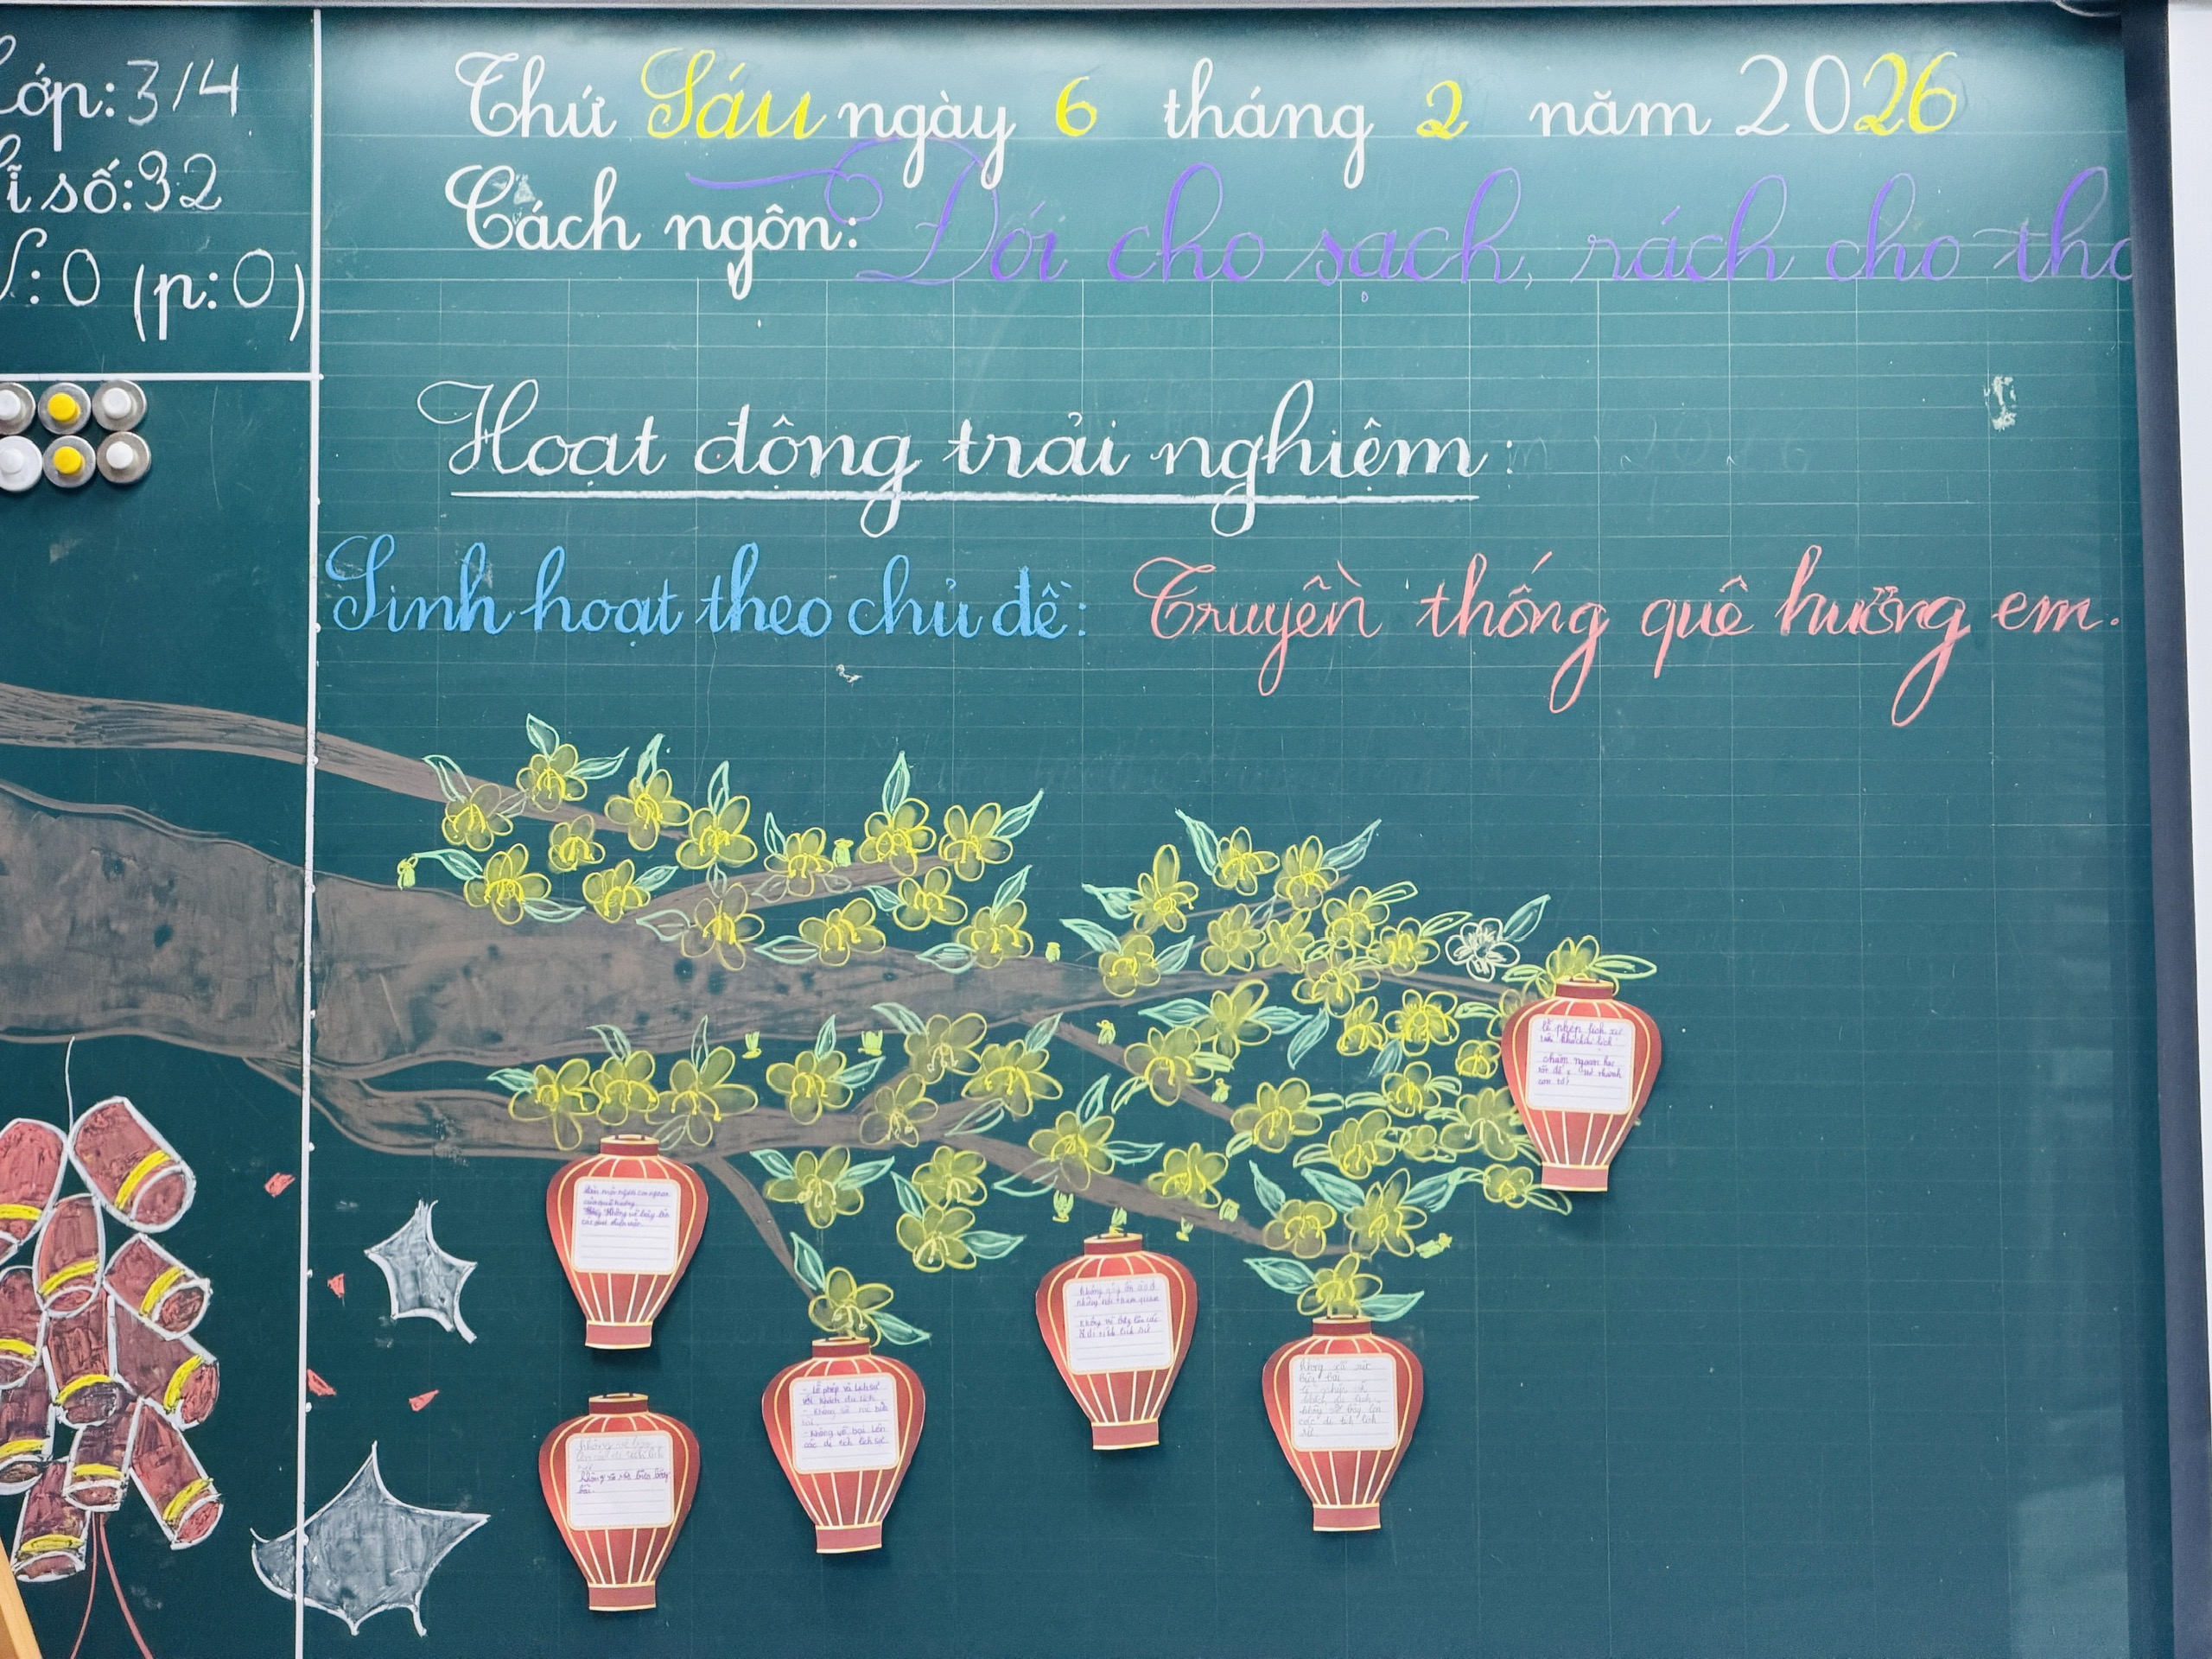 Lớp: 3/4
Sĩ số: 32
V: 0 (p: 0)
Thứ Sáu ngày 6 tháng 2 năm 2026
Cách ngôn: Đói cho sạch, rách cho thơ
Hoạt động trải nghiệm:
Sinh hoạt theo chủ đề: Truyền thống quê hương em.
lễ phép lịch sự
với khách du lịch
- Lễ phép và lịch sự
với khách du lịch
- Không xả rác bừa
bãi
- Không vẽ bậy lên
các di tích lịch sử.
Không xả rác
bừa bãi
lễ phép với
khách du lịch
không vẽ bậy lên
các di tích lịch
sử
Không vẽ bậy
lên các di tích lịch
sử
không xả rác bừa
bãi.